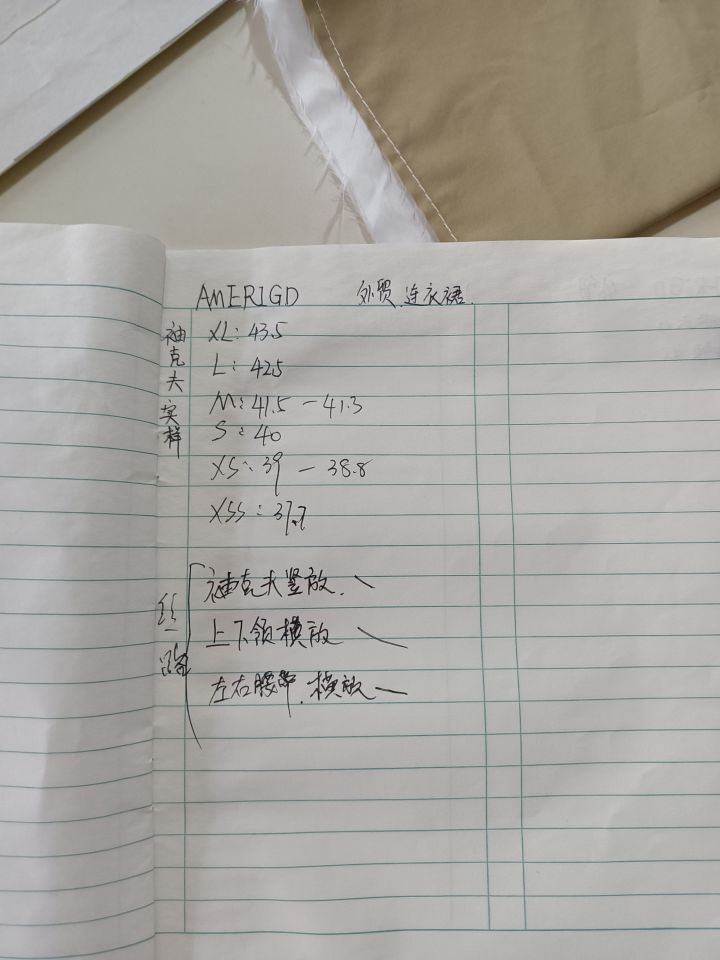 AMERIGD 外贸.连衣裙.
袖克夫实样
XL:43.5
L:42.5
M:41.5-41.3
S:40
XS:39-38.8
XSS:37.7
丝路
袖克夫竖放.
上下领横放
左右腰带.横放